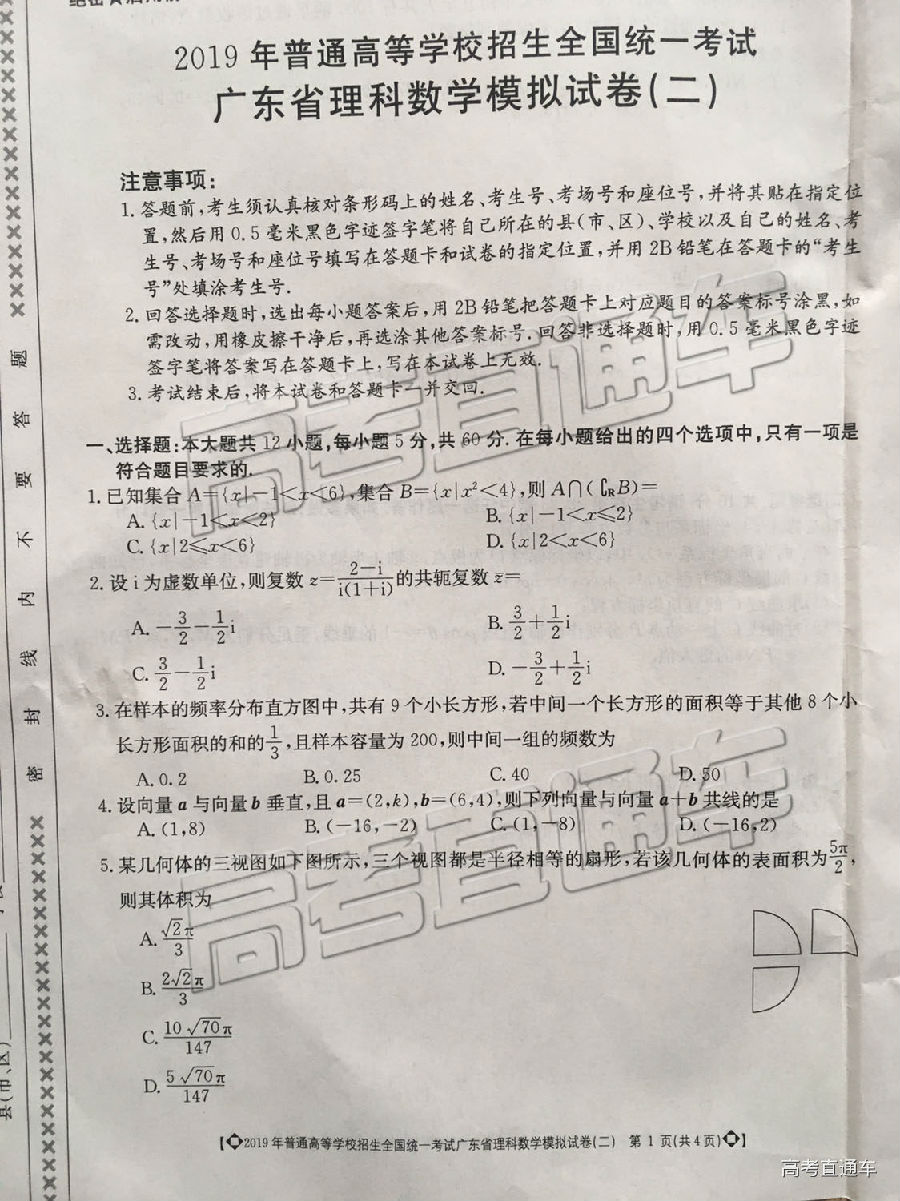 2019 年普通高等学校招生全国统一考试
广东省理科数学模拟试卷(二)
注意事项:
1. 答题前,考生须认真核对条形码上的姓名、考生号、考场号和座位号,并将其贴在指定位
置,然后用 0.5 毫米黑色字迹签字笔将自己所在的县(市、区)、学校以及自己的姓名、考
生号、考场号和座位号填写在答题卡和试卷的指定位置,并用 2B 铅笔在答题卡的“考生
号”处填涂考生号.
2. 回答选择题时,选出每小题答案后,用 2B 铅笔把答题卡上对应题目的答案标号涂黑,如
需改动,用橡皮擦干净后,再选涂其他答案标号.回答非选择题时,用 0.5 毫米黑色字迹
签字笔将答案写在答题卡上.写在本试卷上无效.
3. 考试结束后,将本试卷和答题卡一并交回.
一、选择题:本大题共 12 小题,每小题 5 分,共 60 分.在每小题给出的四个选项中,只有一项是
符合题目要求的.
1. 已知集合 A={x|-1<x<6},集合 B={x|x²<4},则 A∩(∁RB)=
A. {x|-1<x<2}
B. {x|-1<x≤2}
C. {x|2≤x<6}
D. {x|2<x<6}
2. 设 i 为虚数单位,则复数 z=(2-i)/(i(1+i))的共轭复数 z̄=
A. -3/2-1/2i
B. 3/2+1/2i
C. 3/2-1/2i
D. -3/2+1/2i
3. 在样本的频率分布直方图中,共有 9 个小长方形,若中间一个长方形的面积等于其他 8 个小
长方形面积的和的1/3,且样本容量为 200,则中间一组的频数为
A. 0.2 B. 0.25 C. 40 D. 50
4. 设向量 a 与向量 b 垂直,且 a=(2,k),b=(6,4),则下列向量与向量 a+b 共线的是
A. (1,8) B. (-16,-2) C. (1,-8) D. (-16,2)
5. 某几何体的三视图如下图所示,三个视图都是半径相等的扇形,若该几何体的表面积为5π/2,
则其体积为
A. √2π/3
B. 2√2π/3
C. 10√70π/147
D. 5√70π/147
【2019 年普通高等学校招生全国统一考试广东省理科数学模拟试卷(二) 第 1 页(共 4 页)】
密 封 线 内 不 要 答 题
县(市、区)
高考直通车
高考直通车
高考直通车